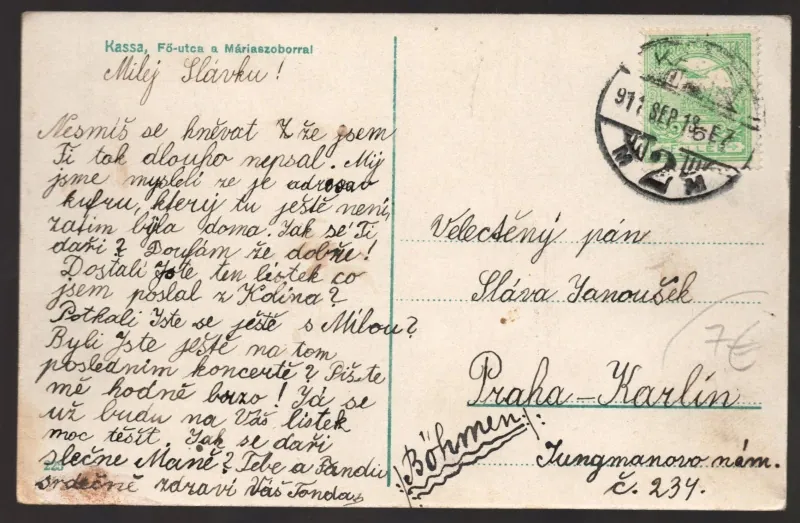 Kassa, Fő-utca a Máriaszoborral
Milej Slávku!
Nesmíš se hněvat Z že jsem
Ti tak dlouho nepsal. My
jsme mysleli ze je adresa v
kufru, který tu ještě není,
zatim byla doma. Jak se Ti
daři? Doufám že dobře!
Dostali Jste ten listek co
jsem poslal z Kolína?
Potkali Jste se ještě s Mílou?
Byli Jste ještě na tom
posledním koncertě? Pište
mě hodně brzo! Já se
už budu na Váš listek
moc těšit. Jak se daři
slečne Maně? Tebe a Fandu
srdečně zdraví Váš Tonda
223
911 SEP. 18
Velectěný pán
Sláva Janoušek
Praha-Karlín
(Böhmen)
Jungmanovo nám.
č. 234.
7€